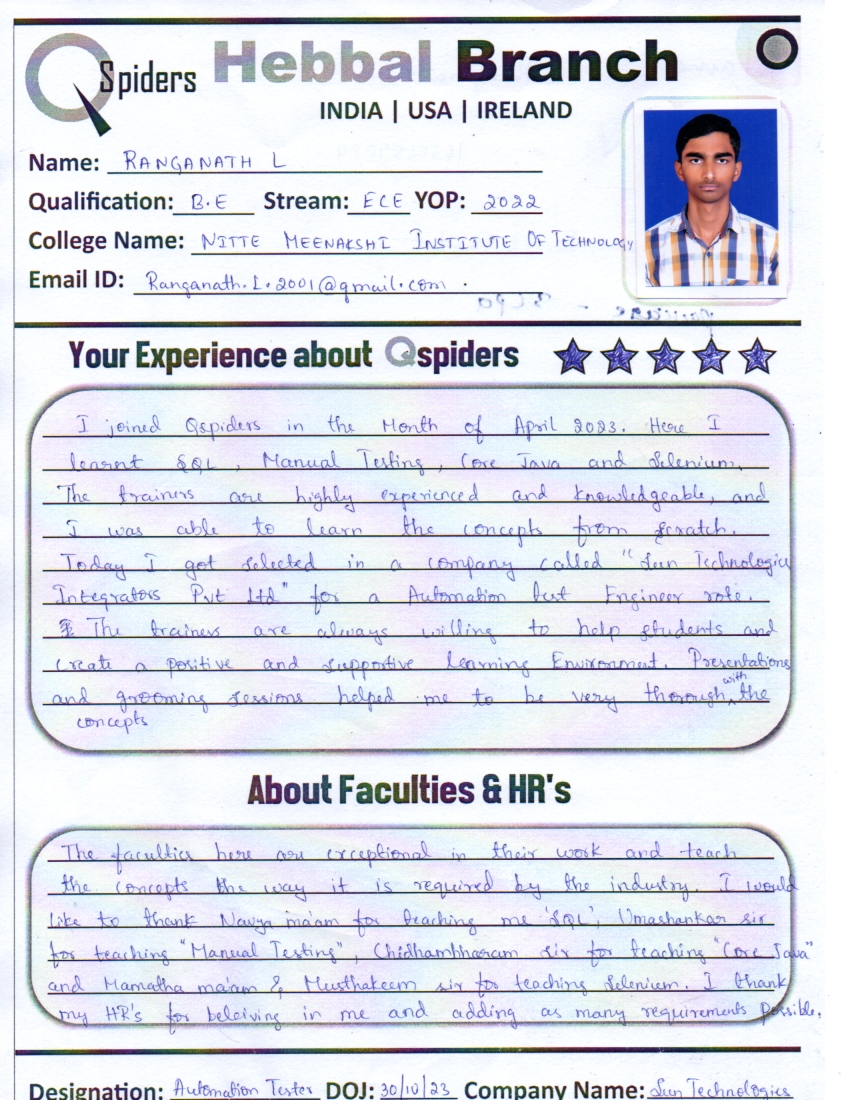 QSpiders Hebbal Branch
INDIA | USA | IRELAND
Name: RANGANATH L
Qualification: B.E Stream: ECE YOP: 2022
College Name: NITTE MEENAKSHI INSTITUTE OF TECHNOLOGY
Email ID: Ranganath.L.2001@gmail.com .
Your Experience about Qspiders
I joined Qspiders in the Month of April 2023. Here I
learnt SQL, Manual Testing, Core Java and Selenium.
The trainers are highly experienced and knowledgeable, and
I was able to learn the concepts from scratch.
Today I got selected in a company called "Sun Technologies
Integrators Pvt Ltd" for a Automation test Engineer role.
The trainers are always willing to help students and
create a positive and supportive learning Environment. Presentations
and grooming sessions helped me to be very thorough with the
concepts
About Faculties & HR's
The faculties here are exceptional in their work and teach
the concepts the way it is required by the industry. I would
like to thank Navya ma'am for teaching me 'SQL', Umashankar sir
for teaching "Manual Testing", Chidhambharam sir for teaching "Core Java"
and Mamatha ma'am & Musthakeem sir for teaching Selenium. I thank
my HR's for beleiving in me and adding as many requirements possible.
Designation: Automation Tester DOJ: 30/10/23 Company Name: Sun Technologies